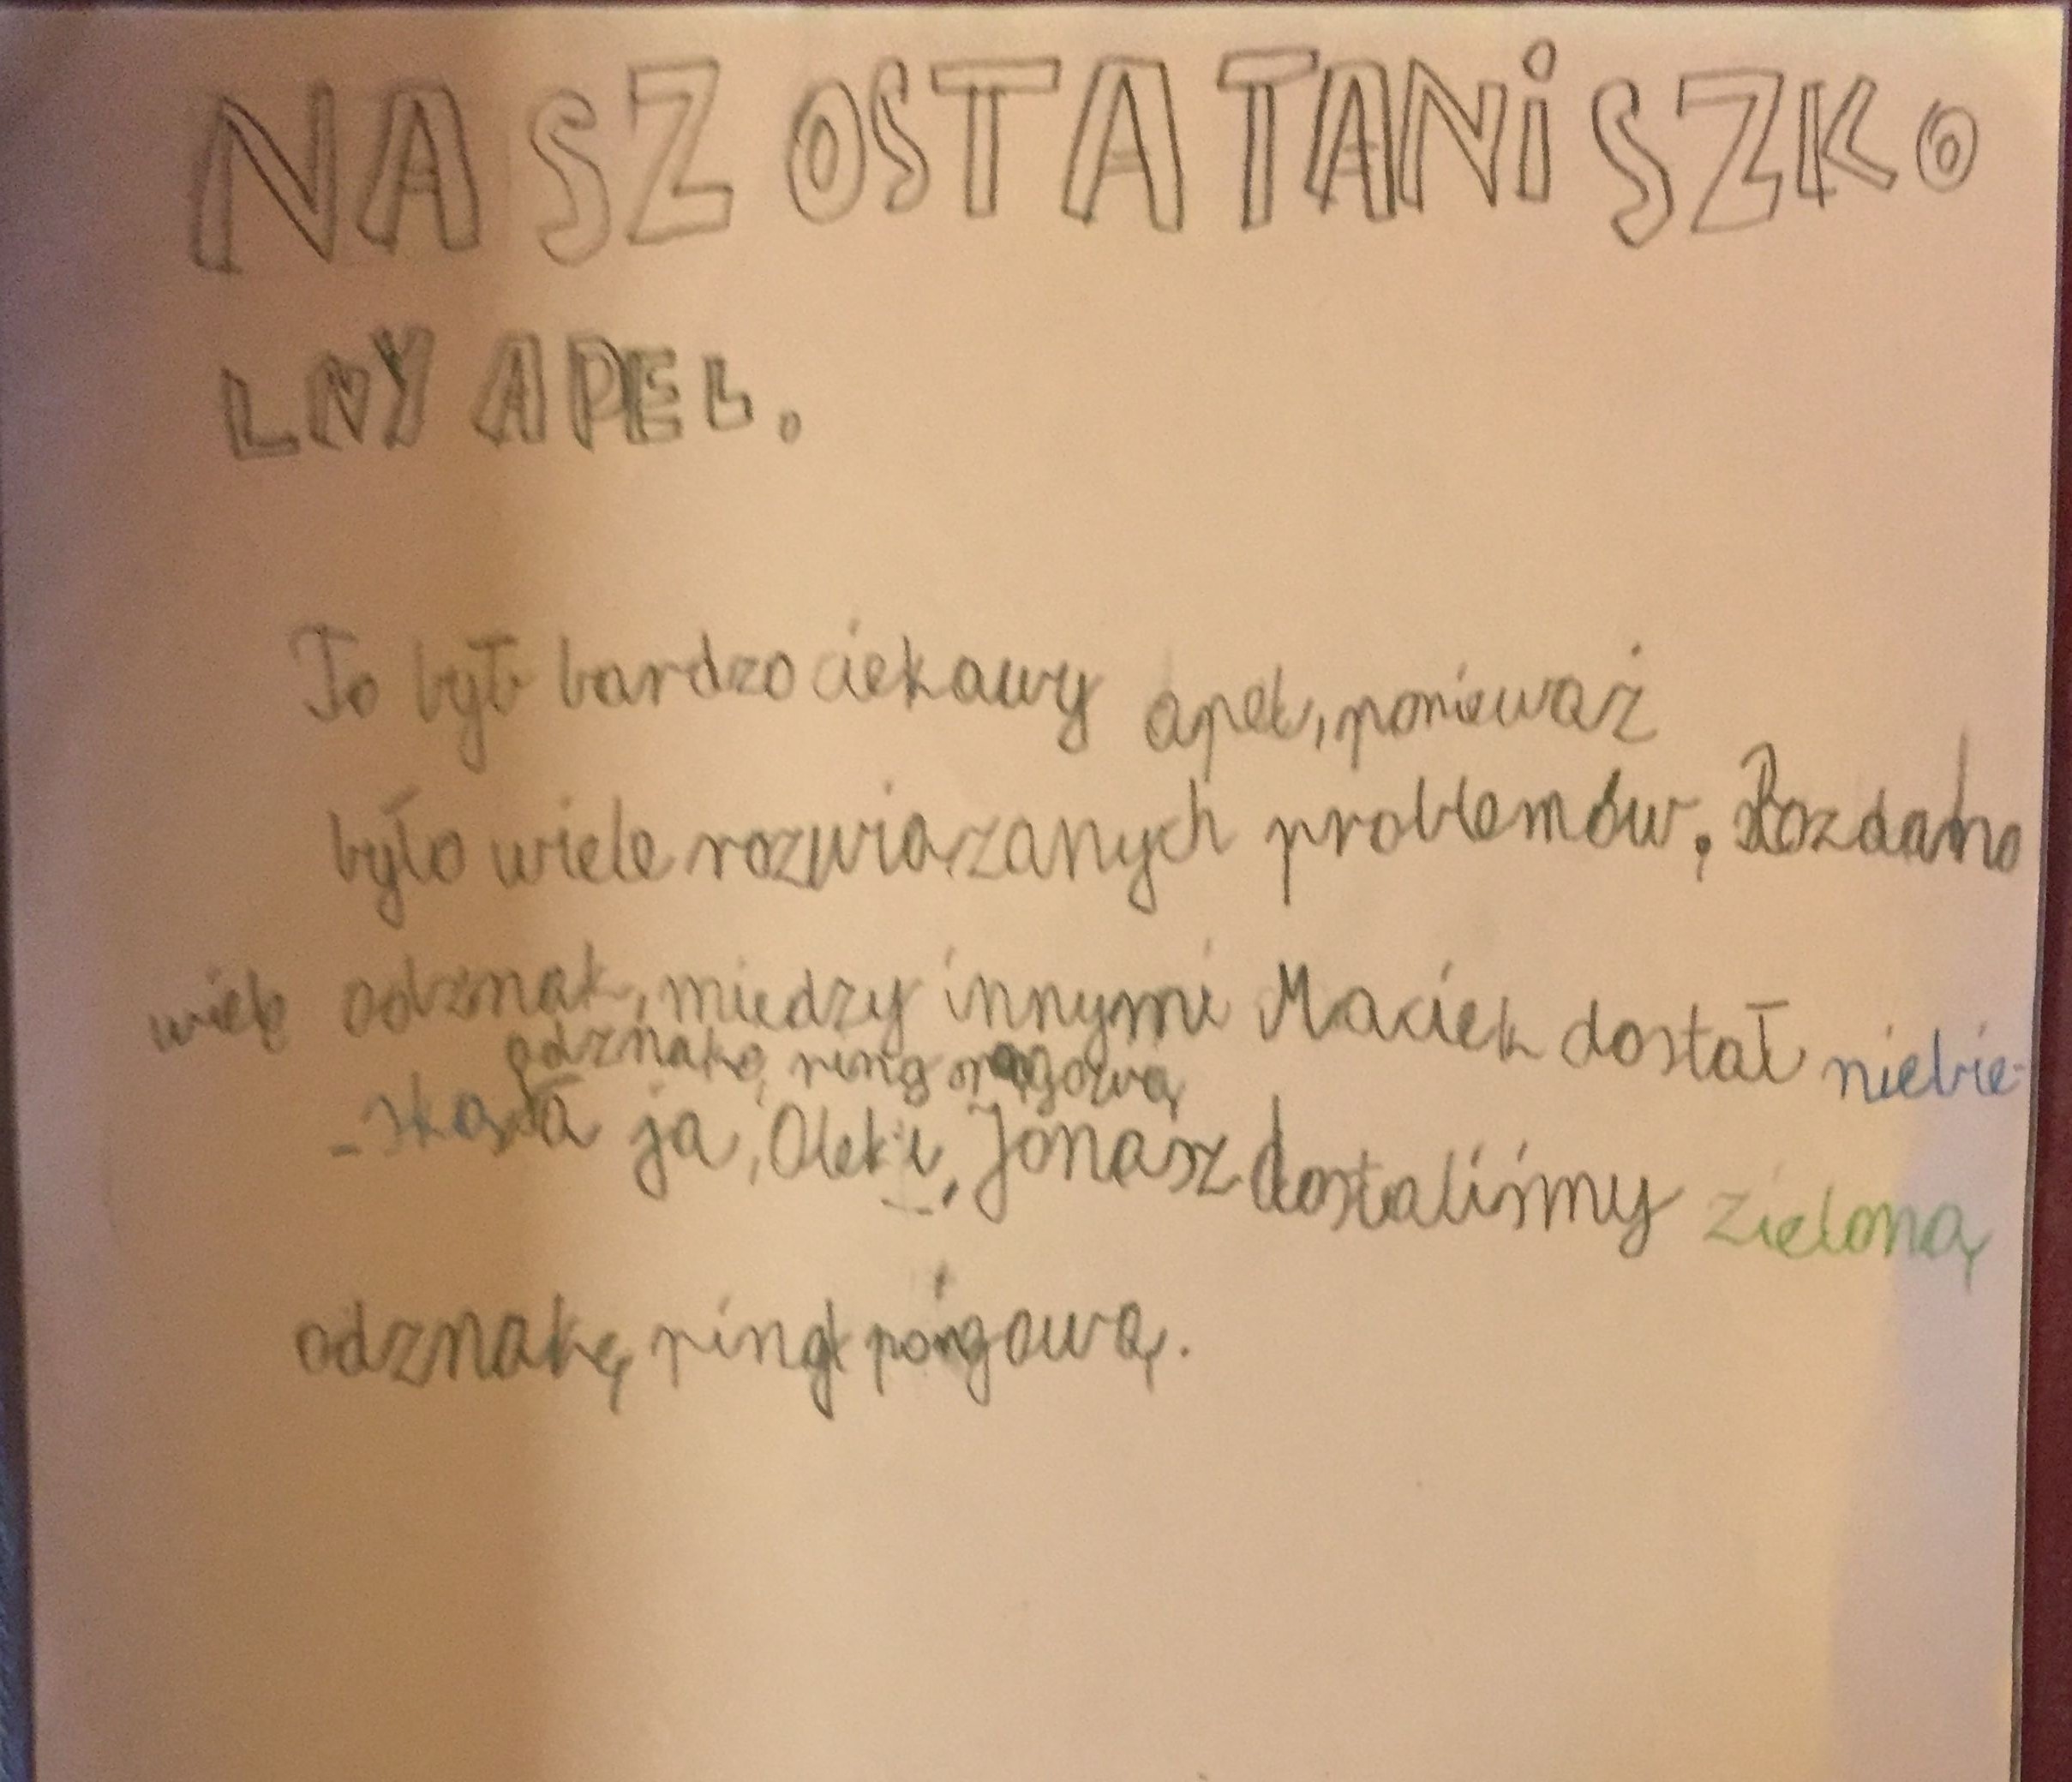 NASZ OSTATANiSZKO
LNY APEL.
To był bardzo ciekawy apel, ponieważ
było wiele rozwiązanych problemów, Rozdano
wiele odznak, miedzy innymi Maciek dostał niebie-
odznakę ring pągową
-ską a ja, Olek i, Jonasz dostaliśmy zieloną
odznakę ring pongową.